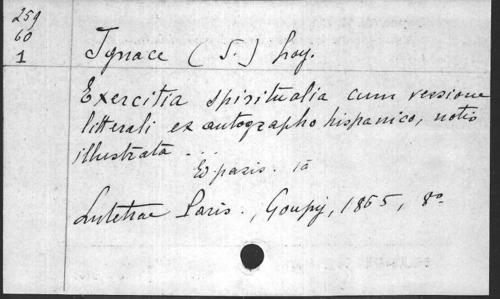 259
60
1
Ignace (S.) Loy.
Exercitia spiritualia cum versione
litterali ex autographo hispanico, notis
illustrata ...
Ed. paris. 1a
Lutetiae Paris., Goupy, 1865, 8o.